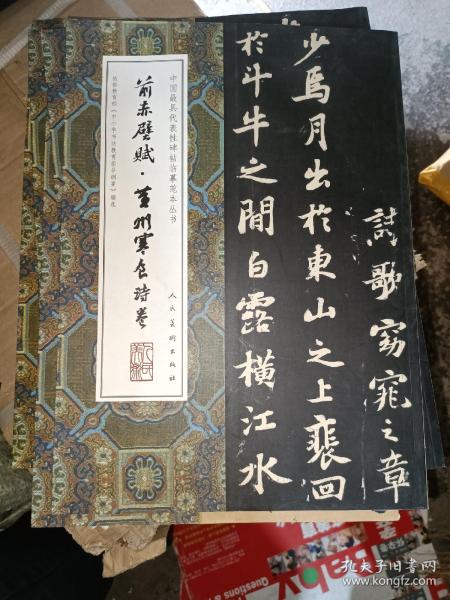 詩歌窈窕之章
少焉月出於東山之上裵回
於斗牛之間白露橫江水
中国最具代表性碑帖临摹范本丛书
前赤壁賦·黄州寒食詩卷
依据教育部《中小学书法教育指导纲要》编选
人民美术出版社
Questions &
孔夫子旧书网
www.kongfz.com